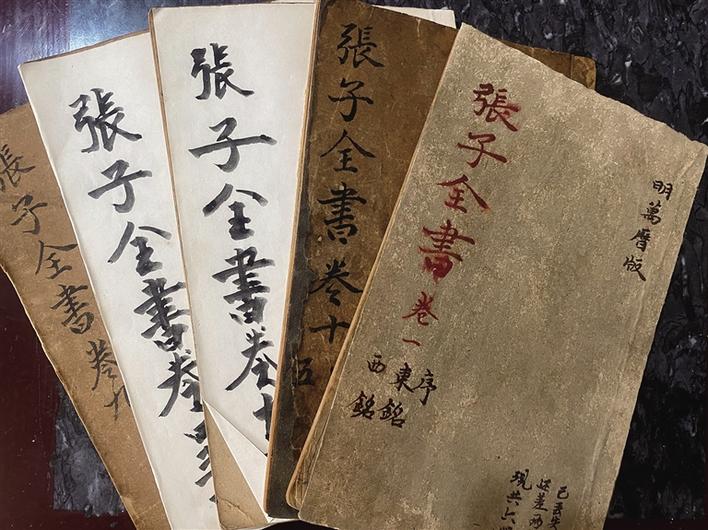 明萬曆版
張子全書卷一
序
東銘
西銘
現共六
張子全書卷十五
張子全書卷十
張子全書卷
張子全書卷